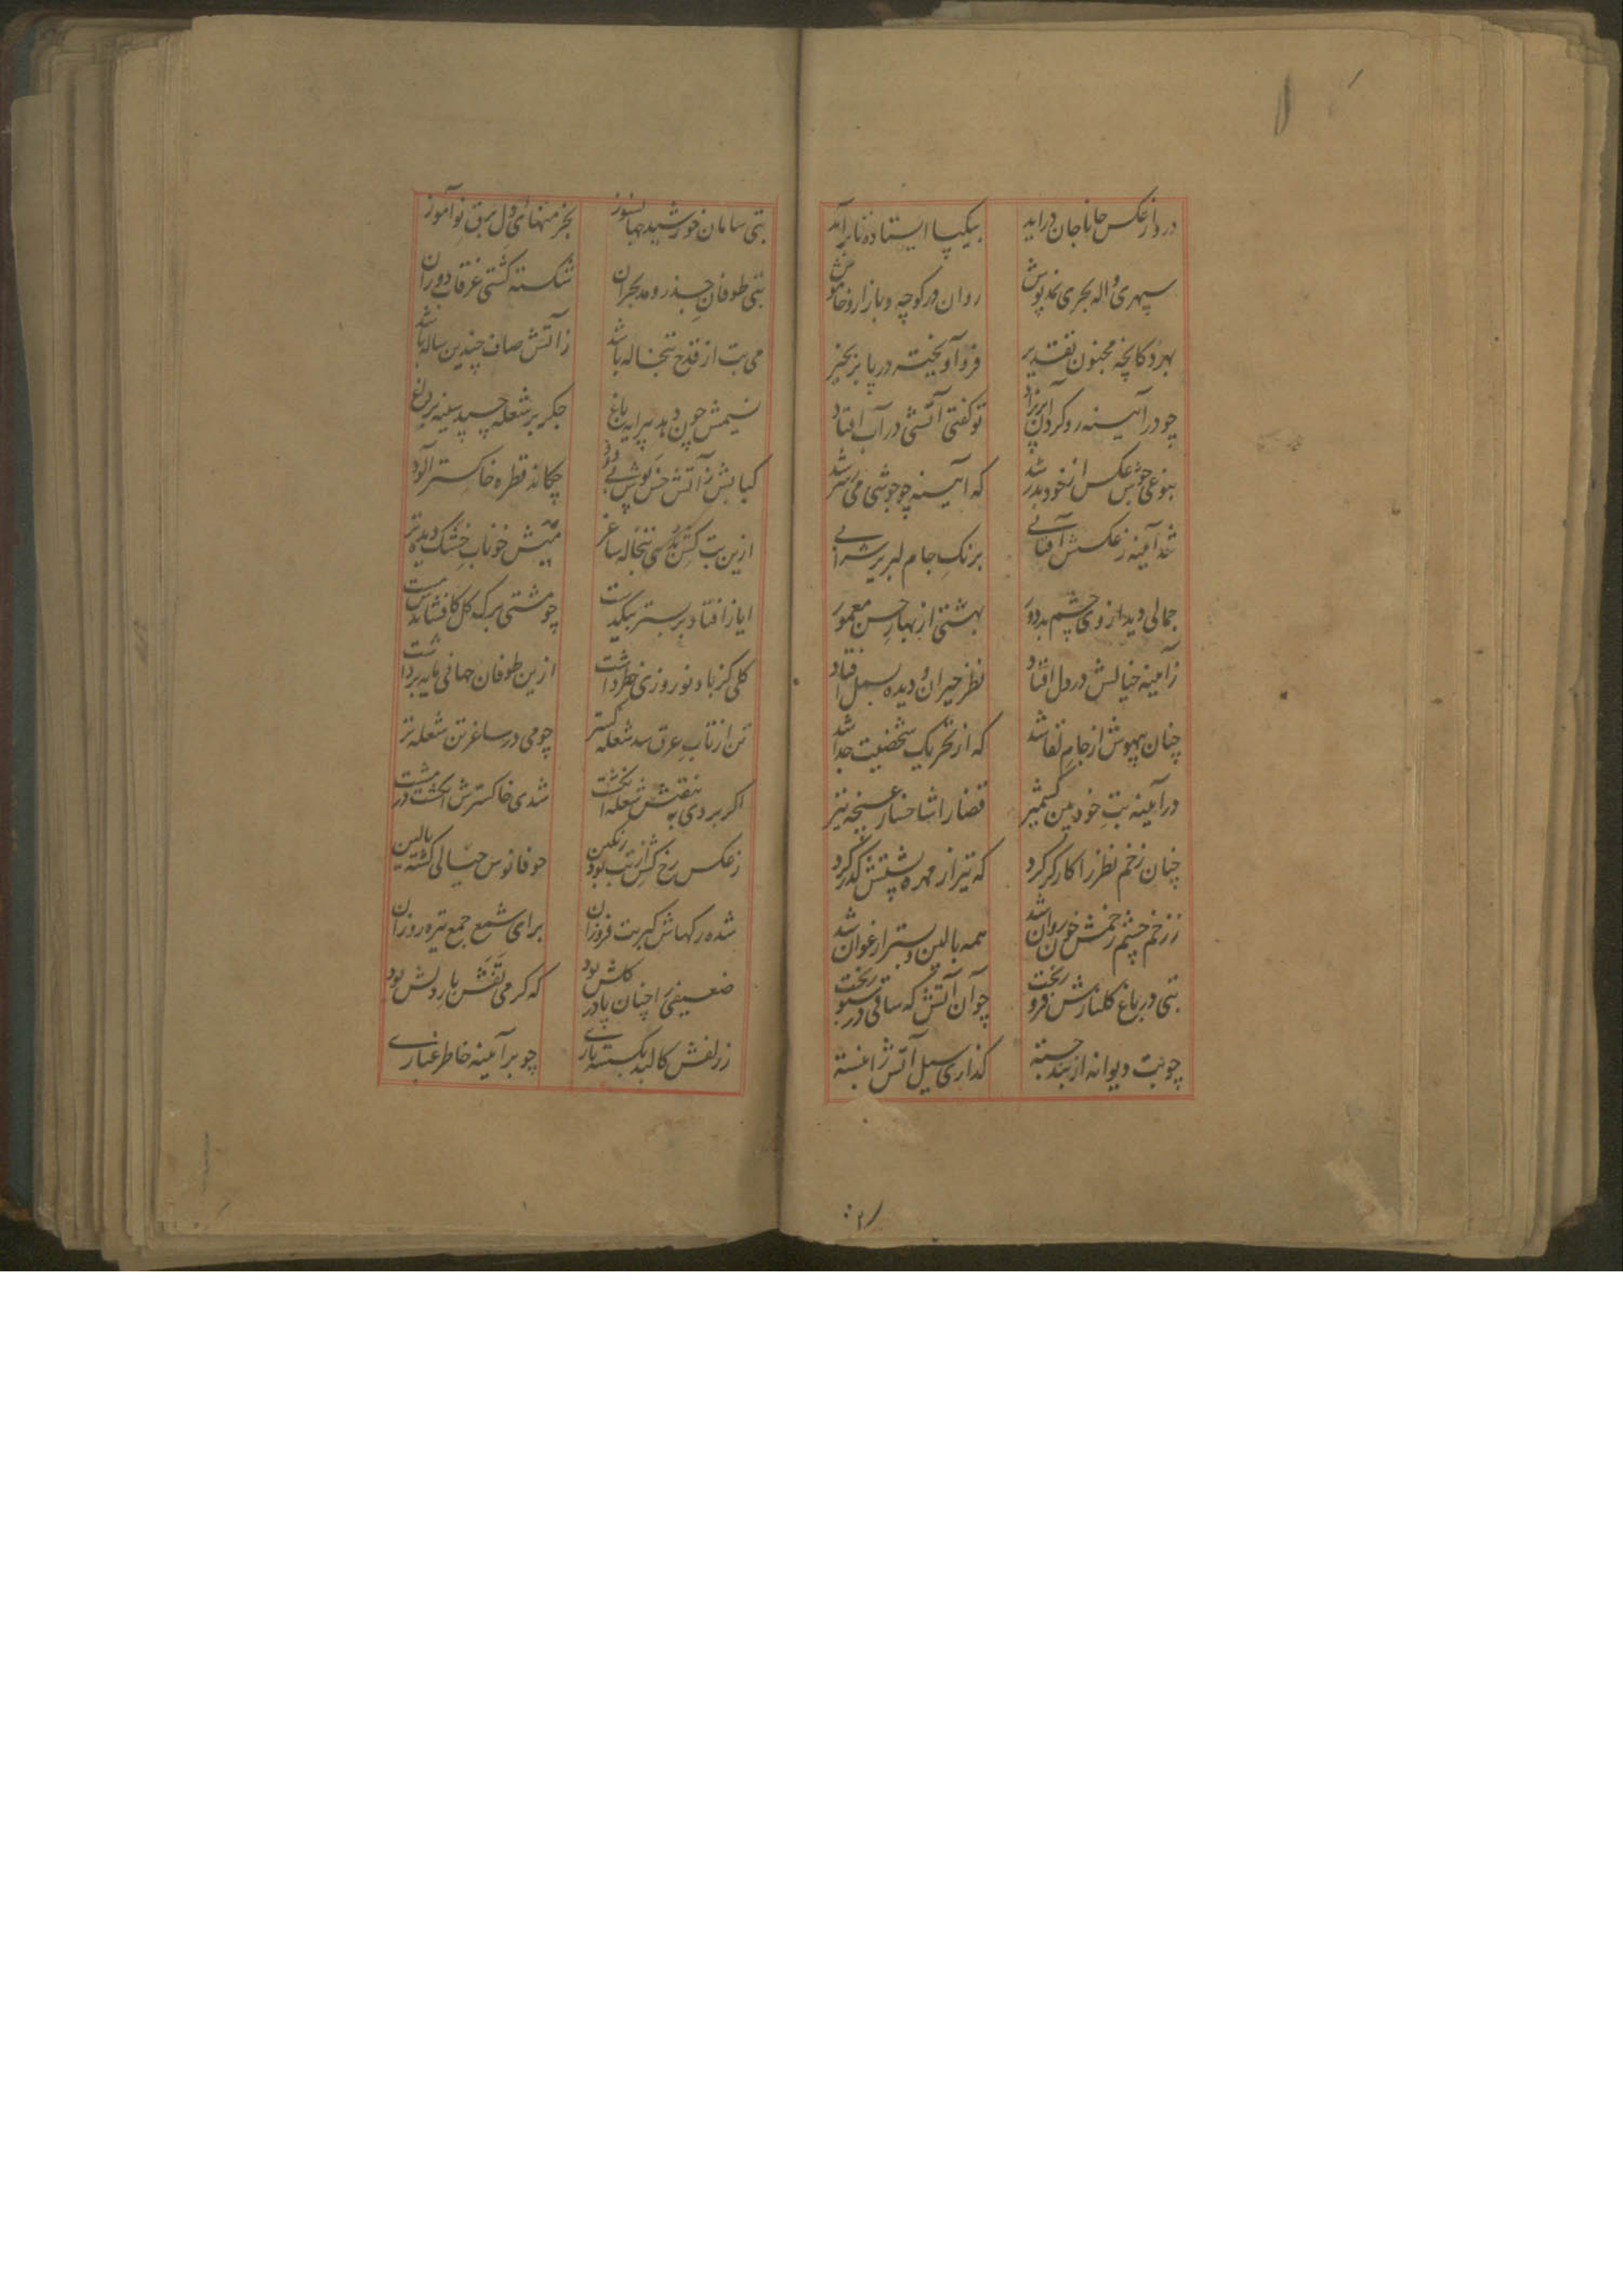 درو از عکس جانا جان دراید
بیکپا ایستاده تا برآید
سپهری واله بحری نمدپوش
روان در کوچه و بازار و خاموش
بهر دکانچه مجنون تقدیر
فروآویخته در پا بزنجیر
چو در آیینه رو کرد آن پریزاد
تو گفتی آتشی در آب افتاد
بنوعی جوش عکس از خود بدر شد
که آیینه چو جوشی می شرر شد
شد آیینه ز عکسش آفتابی
برنگ جام لبریز شرابی
جمالی دید از وی چشم بد دور
بهشتی از بهار حسن معمور
ز آیینه خیالش در دل افتاد
نظر حیران و دیده بسمل افتاد
چنان بیهوش از جام لقا شد
که از تحریک شخصیت جدا شد
در آیینه بت خودبین کشمیر
قضا را شاخسار غنچه تیر
چنان زخم نظر را کارگر کرد
که تیر از مهره پشتش گذر کرد
ز زخم چشم زخمش خون روان شد
همه بالین و بستر ارغوان شد
تبی در باغ گلنارش فرو ریخت
چو آن آتش که ساقی در سبو ریخت
چو تب دیوانه از بند جسته
گذاری سیل آتش را نبسته
تبی سامان خورشید جهانسوز
بخرمنهای دل برق نوآموز
تبی طوفان جذر و مد بحران
شکسته کشتی غرقاب دوران
می تب از قدح تبخاله باشد
ز آتش صاف چندین ساله باشد
نسیمش چون دهد پیرایه باغ
جگر بر شعله چسپد سینه بر داغ
کبابش ز آتش خس پوش بی دود
چکاند قطره خاکستر آلود
ازین تب کش بدی تبخاله ساغر
میش خوناب خشک دیده تر
ایاز افتاد بر بستر بیکدست
چو مشتی برگ گل کافشاندش مست
گلی کز باد نوروزی خطر داشت
ازین طوفان جهانی مایه برداشت
تن از تاب عرق شد شعله گستر
چو می در ساغر تن شعله تر
اگر بردی به نبضش شعله انگشت
شدی خاکسترش انگشت در مشت
ز عکس رخ کش از تب بود رنگین
چو فانوس خیالی گشته بالین
شده رگهاش کبریت فروزان
برای شمع جمع تیره روزان
ضعیفی را چنان پا در گلش بود
که گرمی نفس بار دلش بود
ز زلفش کالبد بگسسته تاری
چو بر آیینه خاطر غباری